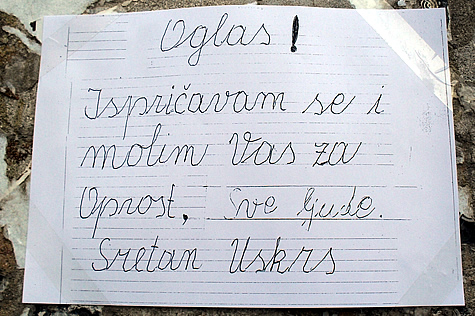 Oglas !
Ispričavam se i
molim Vas za
Oprost, Sve ljude.
Sretan Uskrs